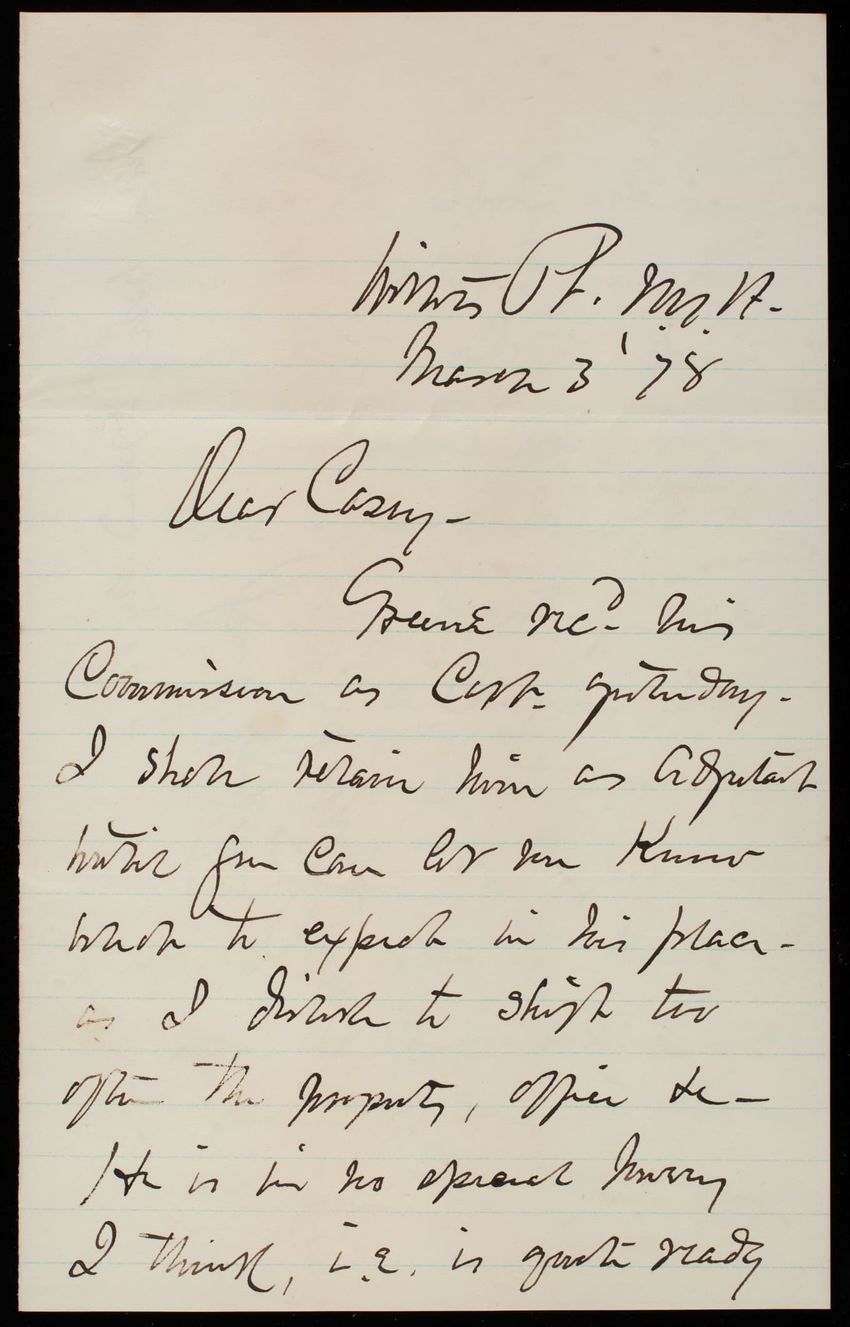 Willets Pt. N.Y. H.
March 3' 78
Dear Casey -
Greene recd. his
Commission as Capt. yesterday.
I shall retain him as Adjutant
until you can let me know
what to expect in his place -
as I dislike to shift too
often the property, office &c -
He is in no special hurry
I think, i.e. is quite ready